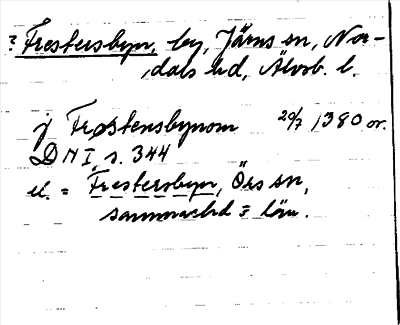 ? Frestersbyn, by, Järns sn, Nor-
dals hd, Älvsb. l.
j Frøstensbynom 20/7 1380 or.
DN I, s. 344
el. = Frestersbyn, Örs sn,
samma hd o län.